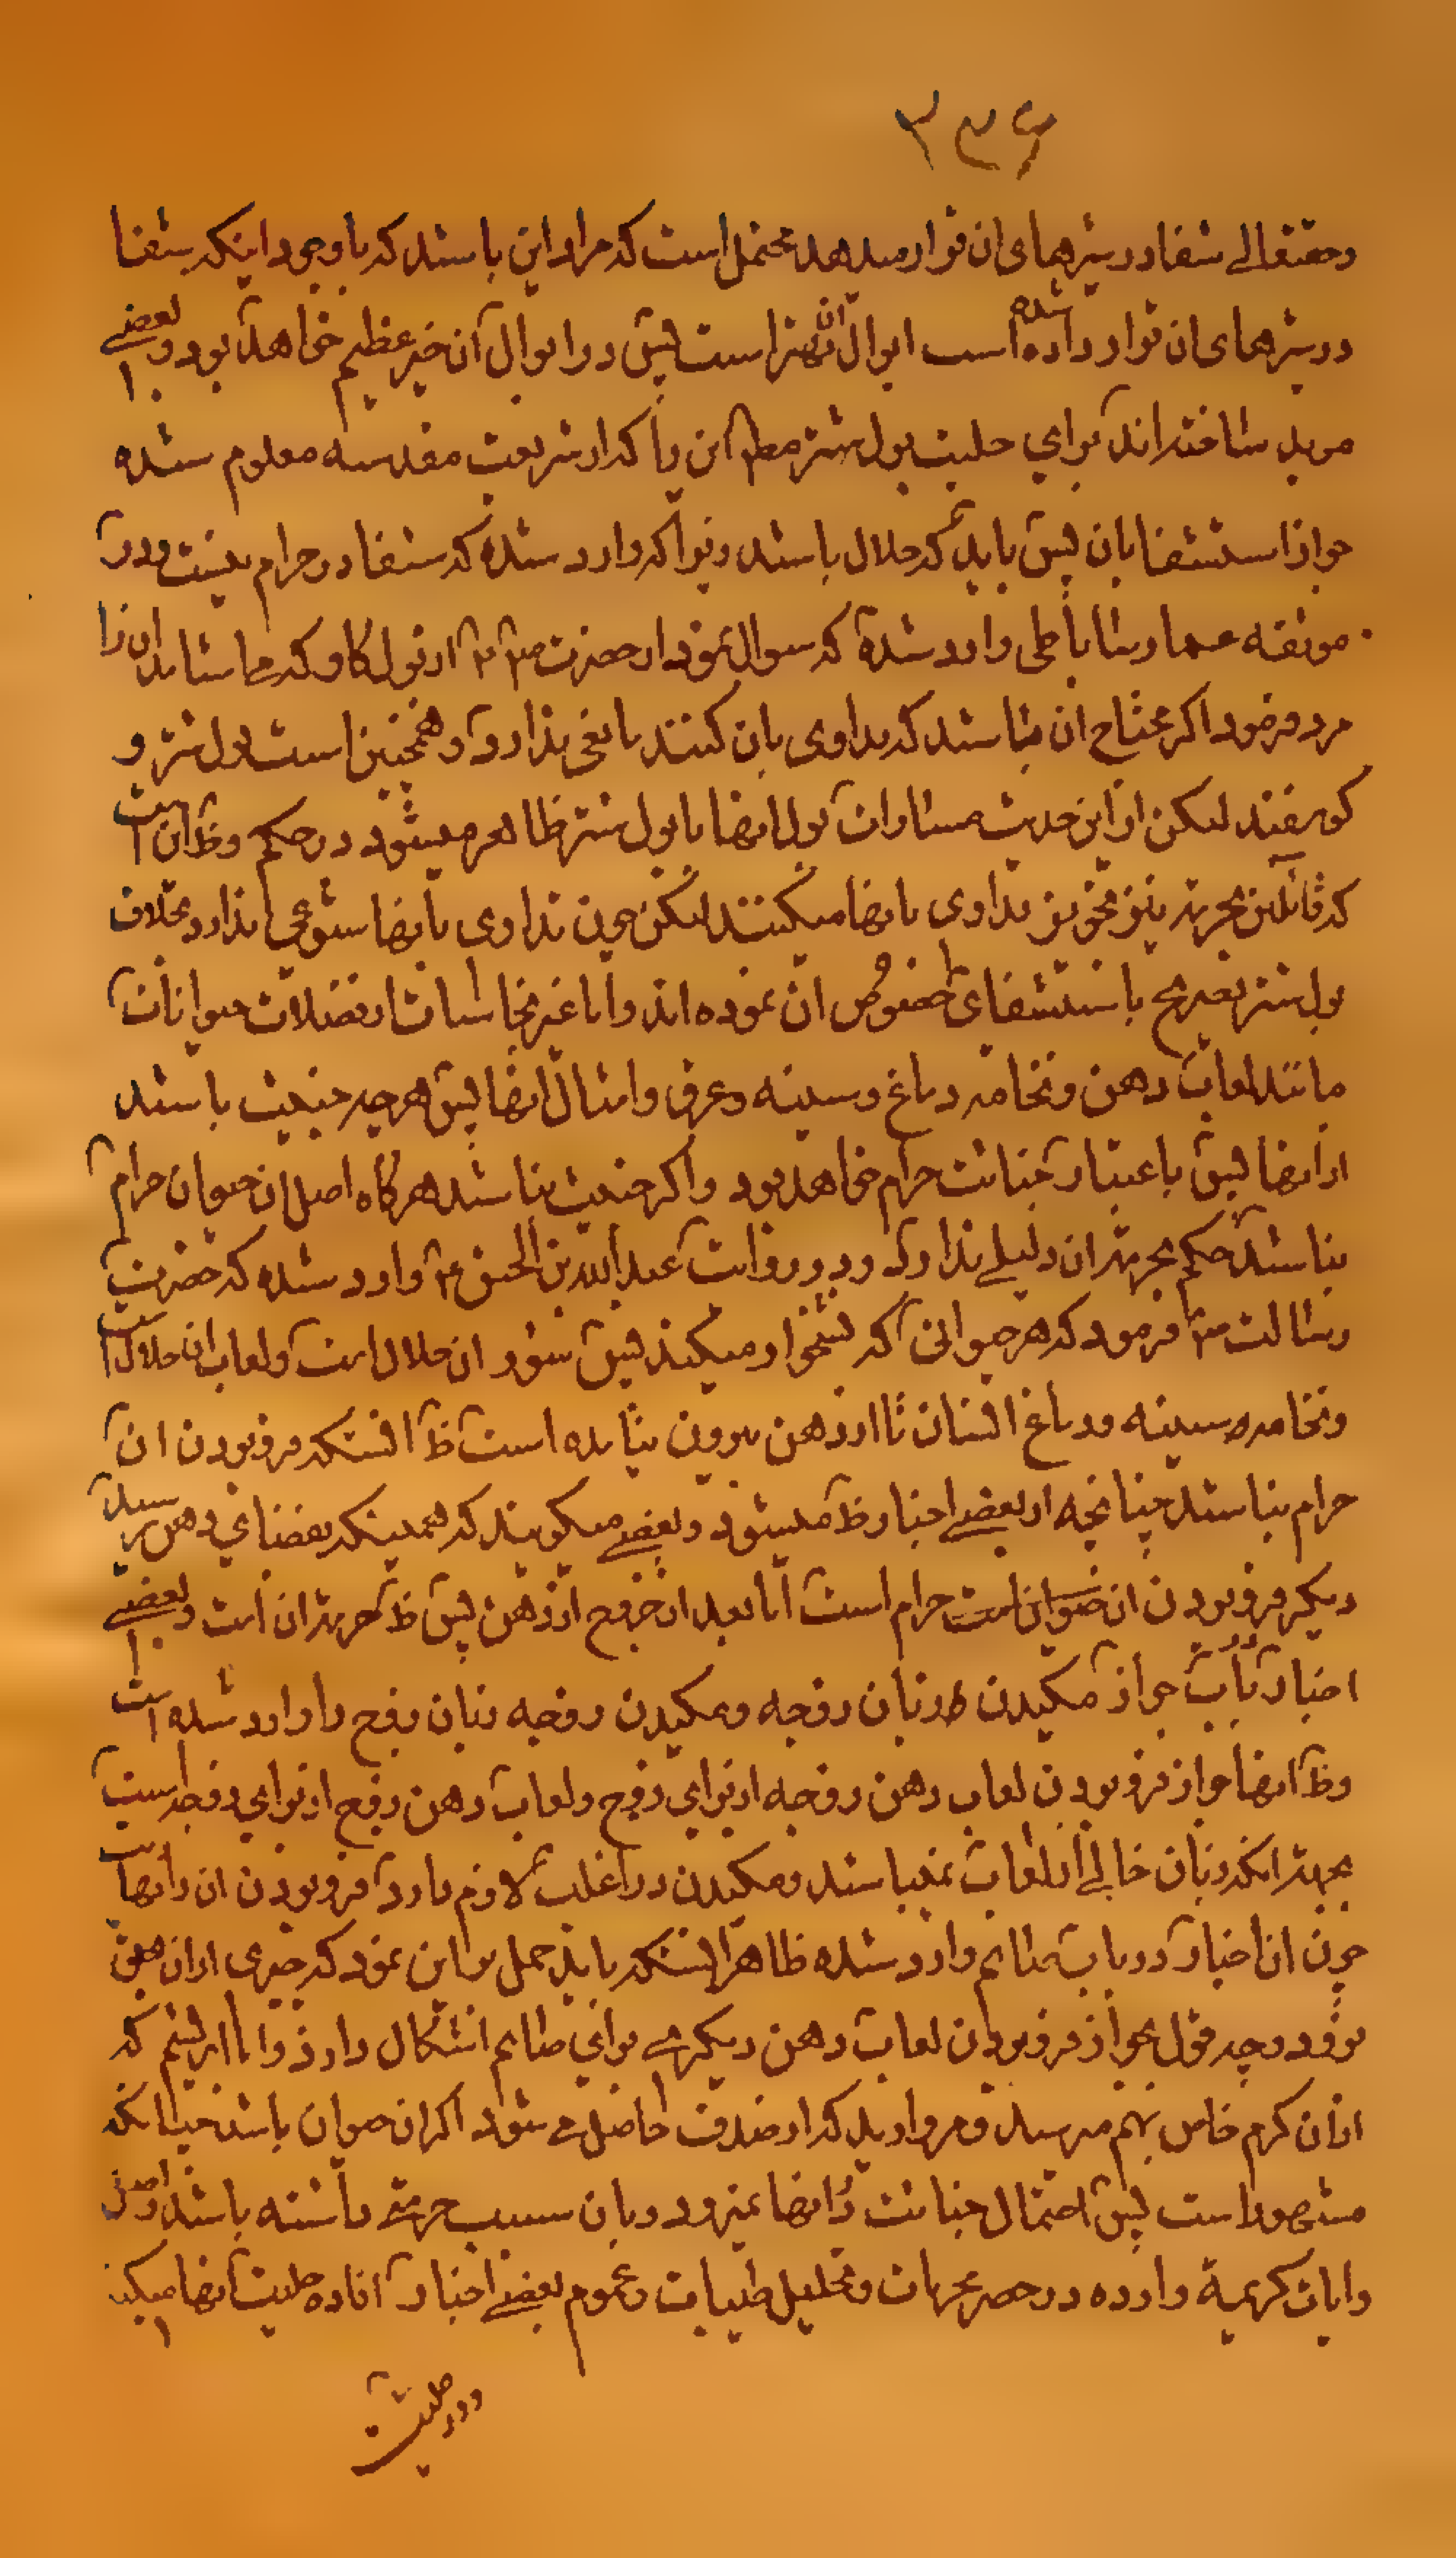 ۳۳۶
و حقتعالے شفا در شیرهای ان قرار میدهد محتمل است که مراد این باشد که با وجود اینکه شفا
در شیرهای ان قرار داده شده است ابوال ان بهتر است پس در ابوال ان خیر عظیم خواهد بود و بعضے
موید ساخته اند برای حلیت بول شتر مطم این را که از شریعت مقدسه معلوم شده
جواز استشفا بان پس باید که حلال باشد زیرا که وارد شده که شفا در حرام نیست و در
موثقه عمار ساباطی وارد شده که سوال نمود از حضرت ص از بول کاو که می اشامد ان را
مرد فرمود اکر محتاج ان باشد که تداوی بان کنند باغی ندارد و همچنین است بول شتر و
کوسفند لیکن از این حدیث مساوات بول انها با بول شتر ظاهر میشود در حکم و ظ ان است
که قائلین بحرمة نیز تجویز تداوی بانها میکنند لیکن چون تداوی بانها شیوعی ندارد بخلاف
بول شتر تصریح باستشفای خصوص ان نموده اند و اما غیر نجاسات از فضلات حیوانات
مانند لعاب دهن و نخامه دماغ و سینه و عرق و امثال انها پس هر چه خبیث باشد
از انها پس باعتبار خباثت حرام خواهد بود و اکر خبیث نباشد هرکاه اصل ان حیوان حرام
نباشد حکم بحرمة ان دلیلے ندارد و در روایت عبد الله بن الحسن وارد شده که حضرت
رسالت ص فرمود که هر حیوانی که نشخوار میکند پس سؤر ان حلال است و لعاب ان حلال است
و نخامه سینه و دماغ انسان تا از دهن بیرون نیامده است ظ انستکه فرو بودن ان
حرام نباشد چنانچه از بعضے اخبار ظ میشود و بعضے میکویند که همینکه بفضای دهن رسید
دیکر فرو بودن ان حرام است اما بعد از خروج از دهن پس ظ حرمة ان است و بعضے
اخبار در باب جواز مکیدن زبان زوجه و مکیدن زوجه زبان زوج را وارد شده است
و ظ انها جواز فرو بودن لعاب دهن زوجه از برای زوج و لعاب دهن زوج از برای زوجه است
بجهة انکه زبان خالے از لعاب نمیباشد و مکیدن در اغلب لازم دارد فرو بودن ان را انها
چون ان اخبار در باب صائم وارد شده ظاهرا انستکه باید حمل بر این نمود که چیزی از ان بحلق
نرود و چه قول بجواز فرو بودن لعاب دهن دیکرے برای صائم اشکال دارد و اما ابریشم که
از ان کرم خاص بهم میرسد و مروارید که از صدف حاصل مے شود اکر ان حیوان باشد چنانکه
مشهور است پس احتمال خباثت در انها نمیرود و بان سبب حرمتے داشته باشد و اصل
و ایات کریمة وارده در حصر محرمات و تحلیل طیبات و عموم بعضے اخبار افاده حلیت انها میکند
و در حلیت